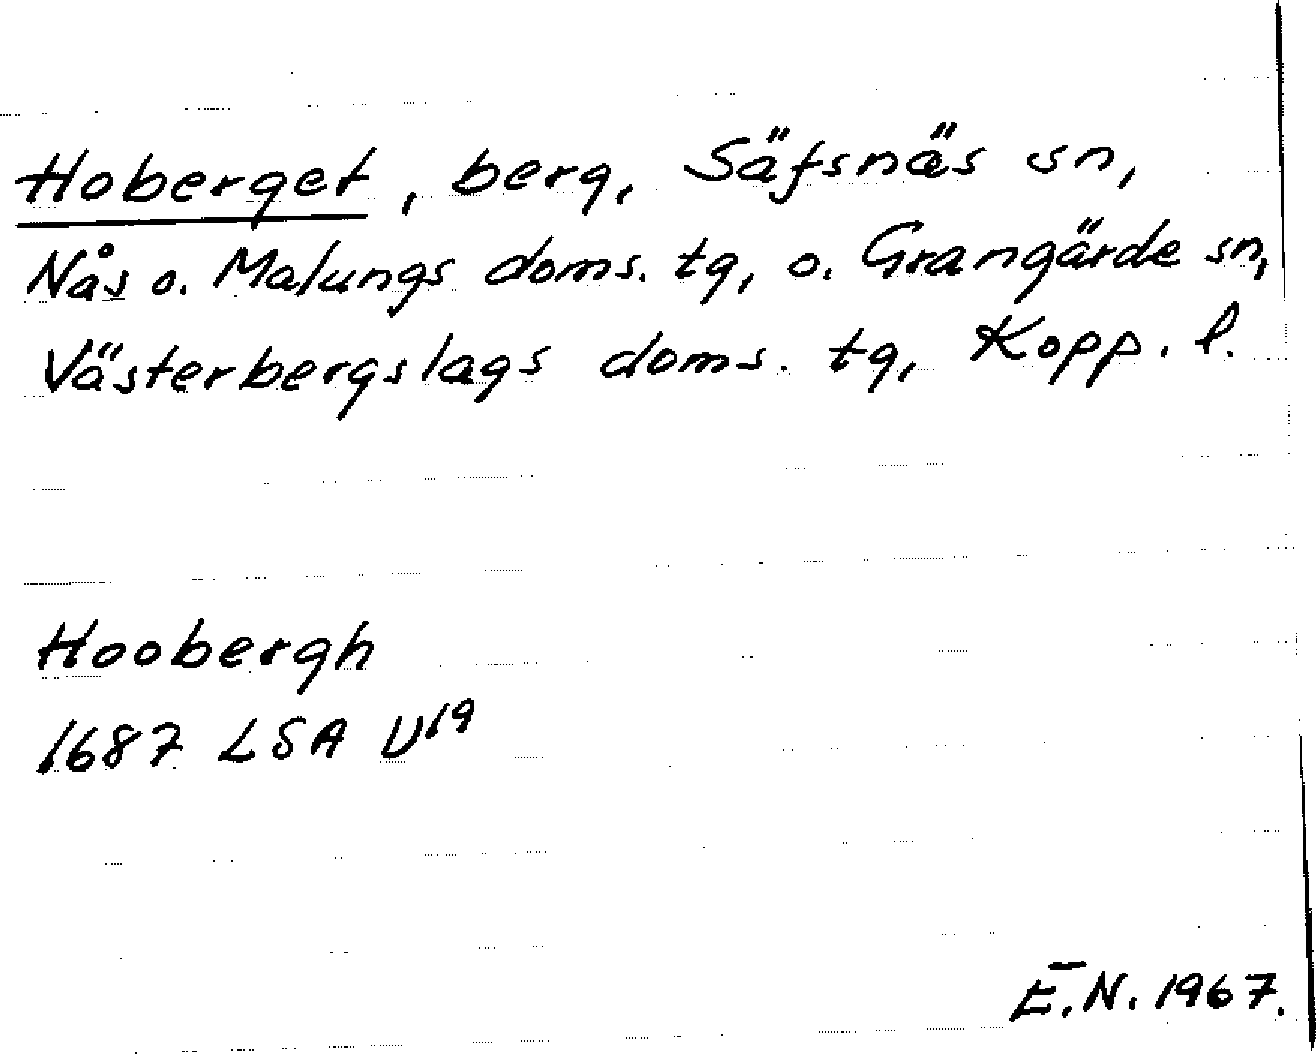 Hoberget, berg, Säfsnäs sn,
Nås o. Malungs doms. tg, o. Grangärde sn,
Västerbergslags doms. tg, Kopp. l.
Hoobergh
1687 LSA U19
E.N. 1967.